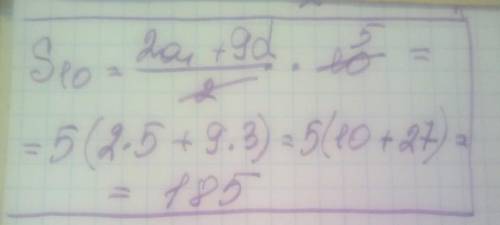 S₁₀ = (2a₁ + 9d)/2 · 10 5 =
= 5(2·5 + 9·3) = 5(10 + 27) =
= 185